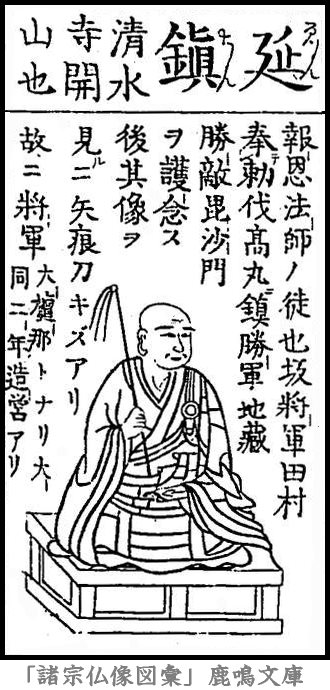 延鎮
清水
寺開
山也
報恩法師ノ徒也坂将軍田村
奉勅伐髙丸鎮勝軍地藏
勝敵毘沙門
ヲ護念ス
後其像ヲ
見ルニ矢痕刀キズアリ
故ニ将軍大檀那トナリ大
同二年造営アリ
「諸宗仏像図彙」鹿鳴文庫